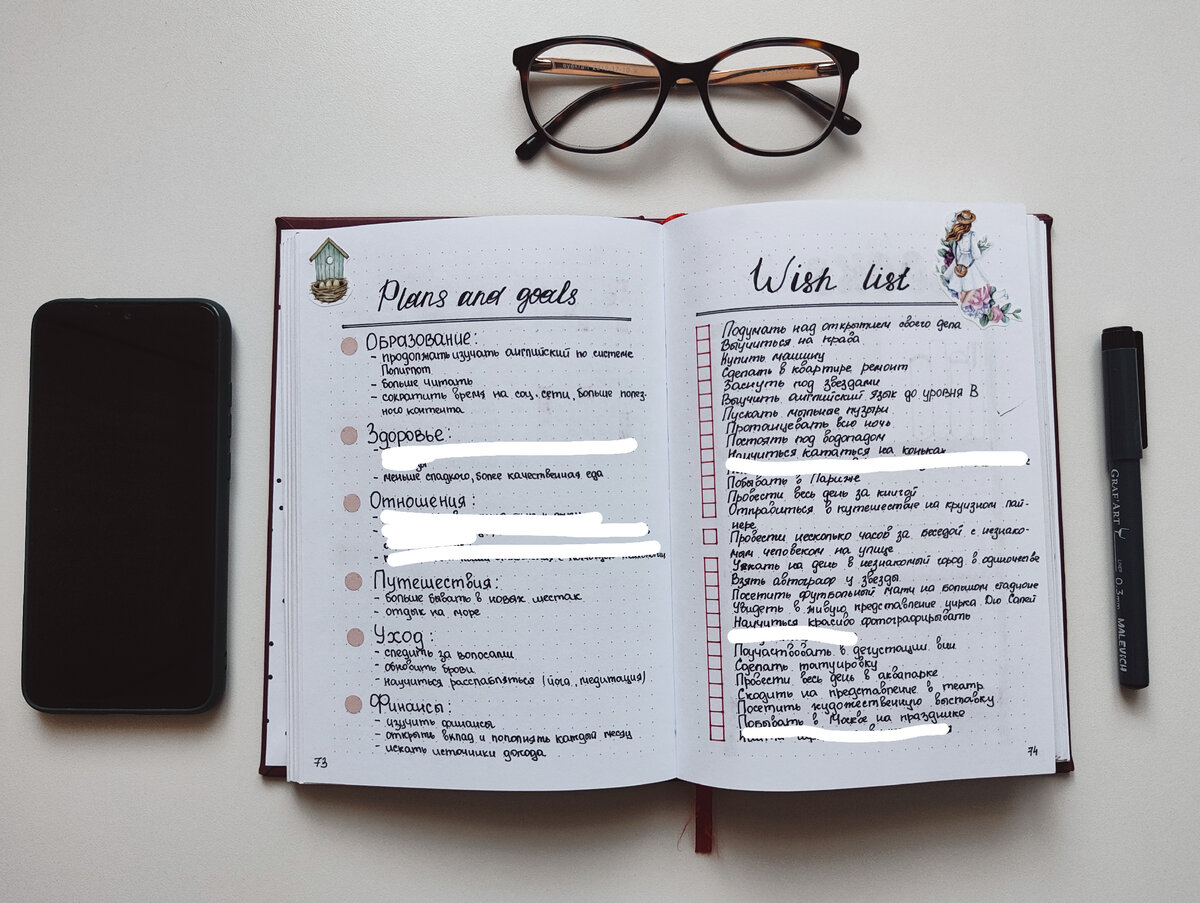 Plans and goals
Образование:
- продолжать изучать английский по системе
Полиглот
- больше читать
- сократить время на соц. сети, больше полез-
ного контента
Здоровье:
- меньше сладкого, более качественная еда
Отношения:
Путешествия:
- больше бывать в новых местах
- отдых на море
Уход:
- следить за волосами
- обновить брови
- научиться расслабляться (йога, медитация)
Финансы:
- изучить финансы
- открыть вклад и пополнять каждый месяц
- искать источники дохода
73
Wish list
Подумать над открытием своего дела
Выучиться на права
Купить машину
Сделать в квартире ремонт
Заснуть под звездами
Выучить английский язык до уровня В
Пускать мыльные пузыри
Протанцевать всю ночь
Постоять под водопадом
Научиться кататься на коньках
Побывать в Париже
Провести весь день за книгой
Отправиться в путешествие на круизном лай-
нере
Провести несколько часов за беседой с незнако-
мым человеком на улице
Уехать на день в незнакомый город в одиночестве
Взять автограф у звезды
Посетить футбольный матч на большом стадионе
Увидеть в живую представление цирка Dю Солей
Научиться красиво фотографировать
Поучаствовать в дегустации вин
Сделать татуировку
Провести весь день в аквапарке
Сходить на представление в театр
Посетить художественную выставку
Побывать в Москве на празднике
74
GRAF'ART
0.3mm
MALEVICH